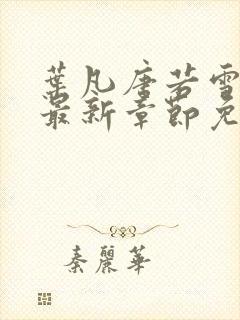 葉凡唐若雪
最新章節免
秦麗華